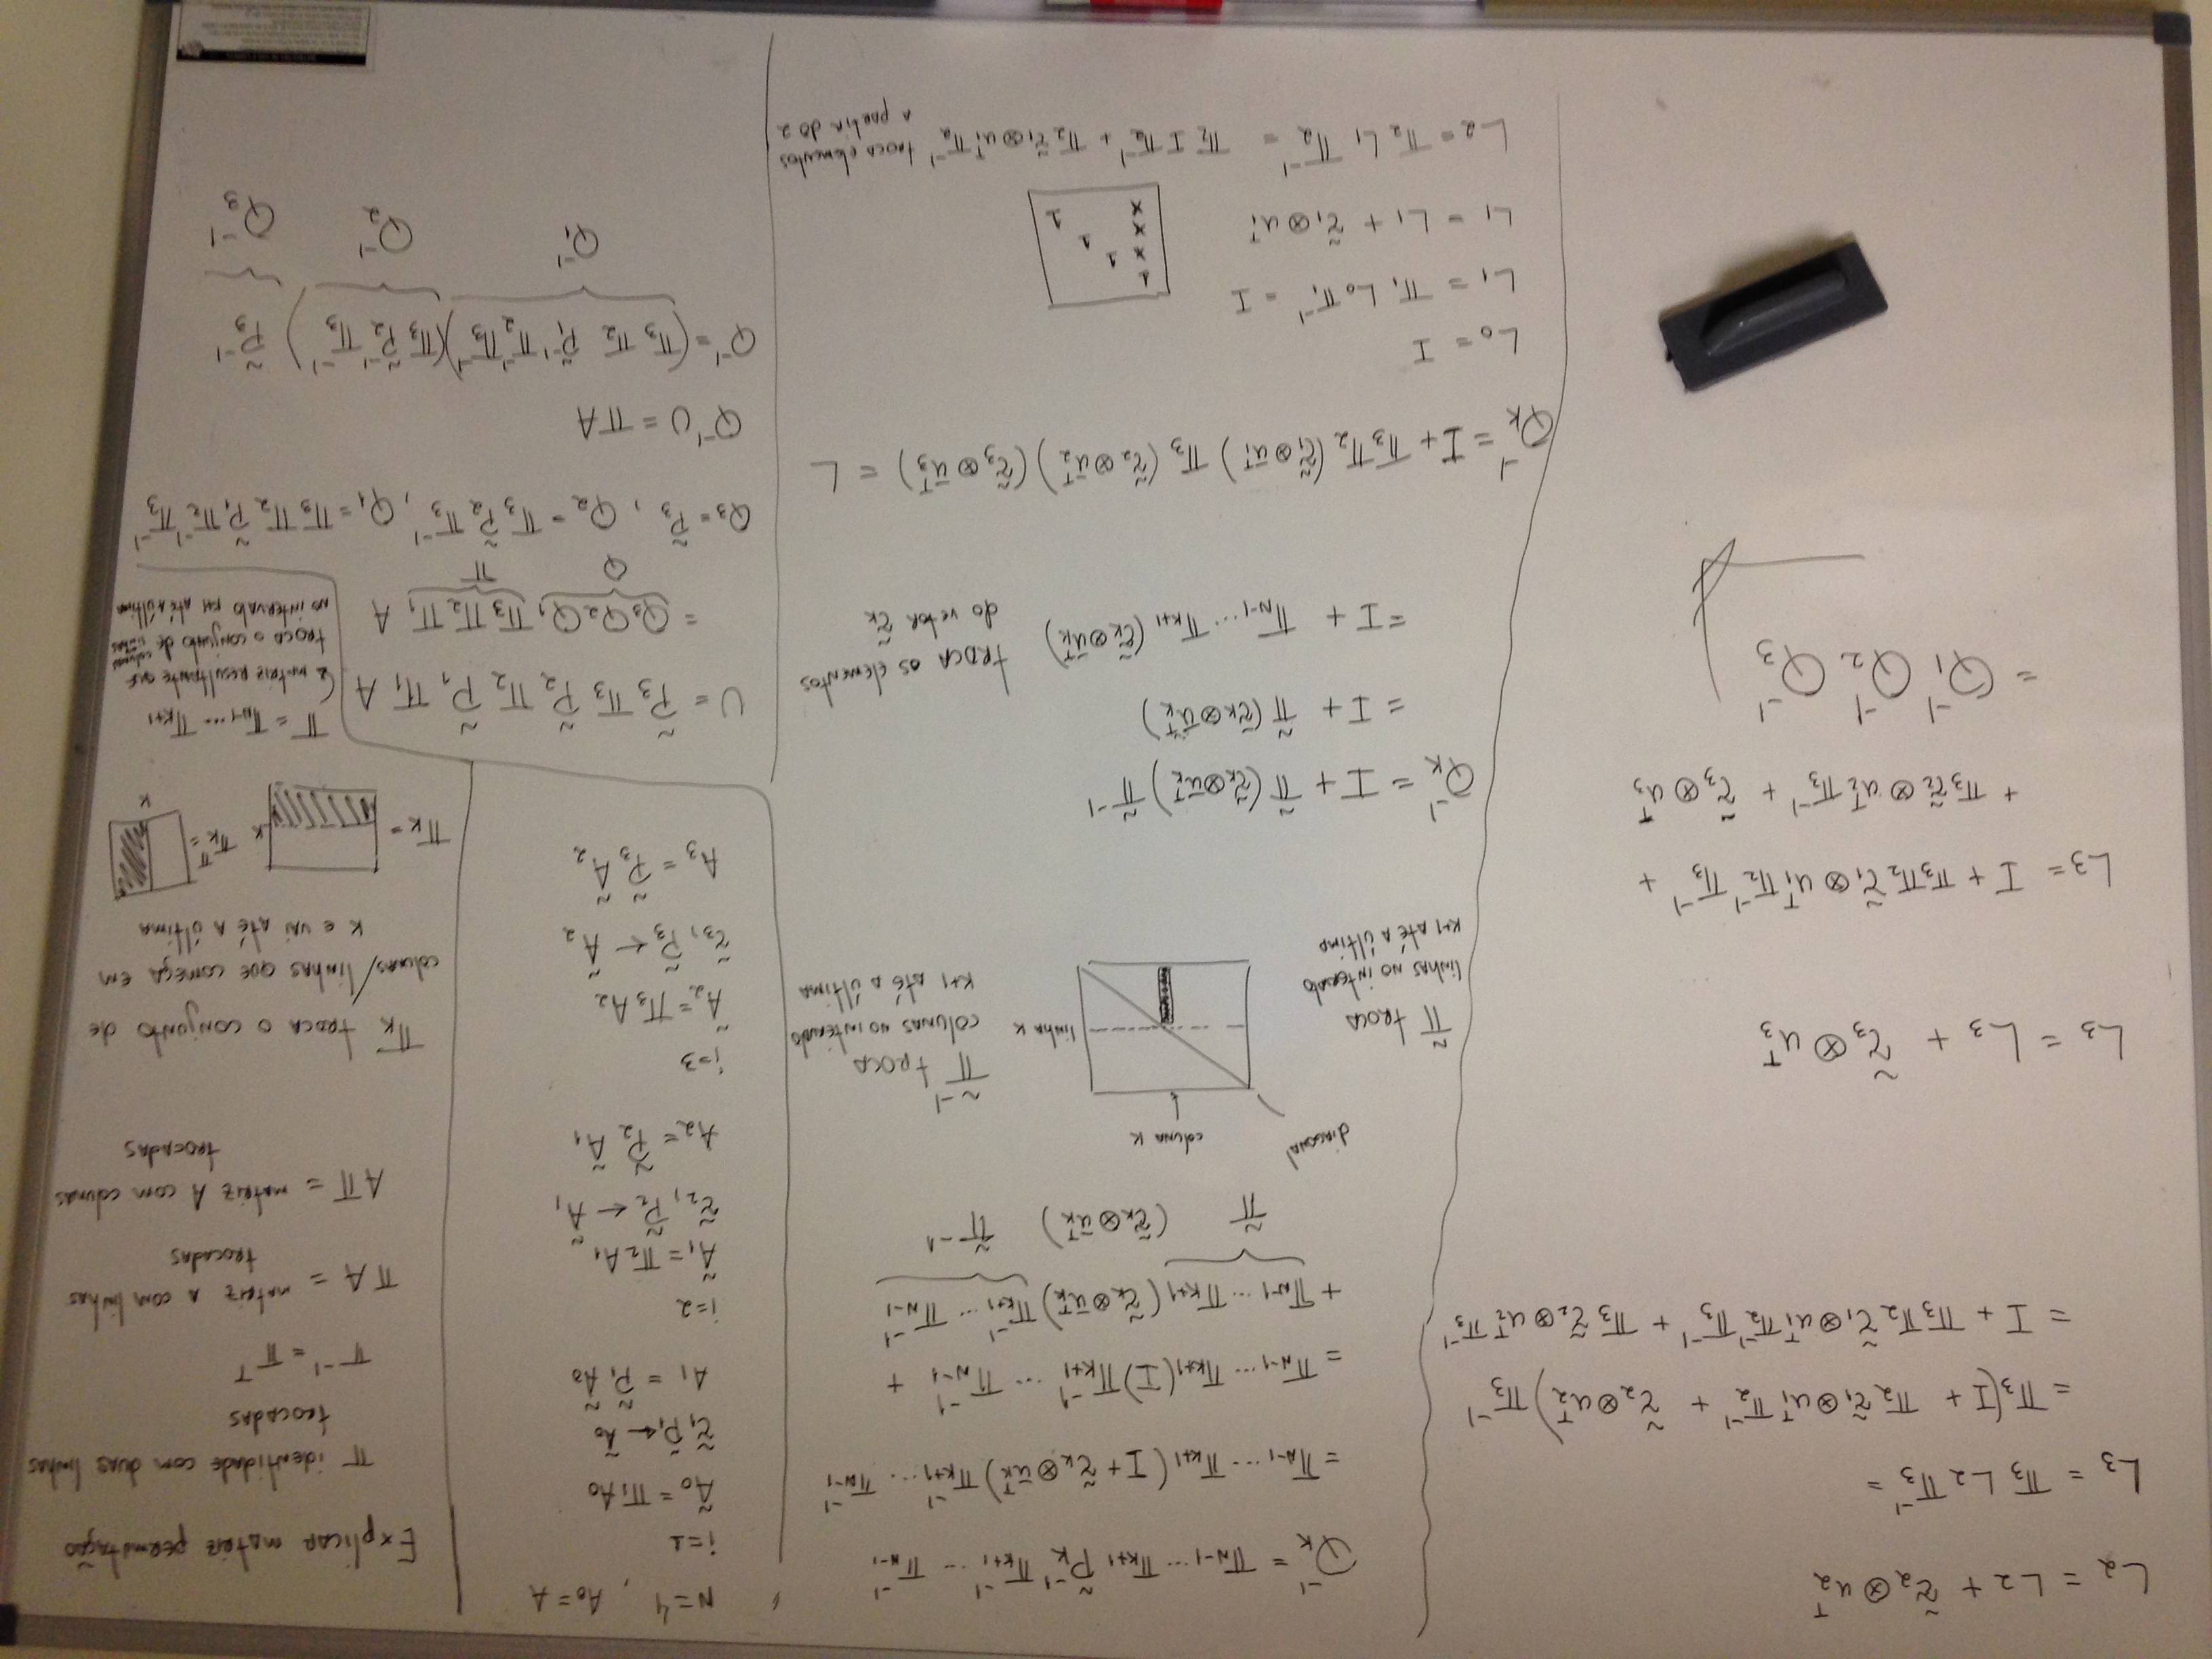 L₂ = L2 + τ̃₂ ⊗ u₂ᵀ
L₃ = π₃ L₂ π₃⁻¹ =
= π₃(I + π₂ τ̃₁ ⊗ u₁ᵀ π₂⁻¹ + τ̃₂ ⊗ u₂ᵀ) π₃⁻¹
= I + π₃π₂ τ̃₁ ⊗ u₁ᵀ π₂⁻¹ π₃⁻¹ + π₃ τ̃₂ ⊗ u₂ᵀ π₃⁻¹
L₃ = L₃ + τ̃₃ ⊗ u₃ᵀ
L₃ = I + π₃π₂ τ̃₁ ⊗ u₁ᵀ π₂⁻¹ π₃⁻¹ +
+ π₃ τ̃₂ ⊗ u₂ᵀ π₃⁻¹ + τ̃₃ ⊗ u₃ᵀ
= Q₁⁻¹ Q₂⁻¹ Q₃⁻¹
Q_K⁻¹ = π_{N-1} ... π_{K+1} P̃_K⁻¹ π_{K+1}⁻¹ ... π_{N-1}⁻¹
= π_{N-1} ... π_{K+1} (I + τ̃_K ⊗ ū_Kᵀ) π_{K+1}⁻¹ ... π_{N-1}⁻¹
= π_{N-1} ... π_{K+1} (I) π_{K+1}⁻¹ ... π_{N-1}⁻¹ +
+ π_{N-1} ... π_{K+1} (τ̃_K ⊗ ū_Kᵀ) π_{K+1}⁻¹ ... π_{N-1}⁻¹
π̃ (τ̃_K ⊗ ū_Kᵀ) π̃⁻¹
diagonal
coluna K
linha K
π̃ troca
linhas no intervalo
K+1 até a última
π̃⁻¹ troca
colunas no intervalo
K+1 até a última
Q_K⁻¹ = I + π̃ (τ̃_K ⊗ ū_Kᵀ) π̃⁻¹
= I + π̃ (τ̃_K ⊗ ū_Kᵀ)
= I + π_{N-1} ... π_{K+1} (τ̃_K ⊗ ū_Kᵀ)
troca os elementos
do vetor τ̃_K
Q_K⁻¹ = I + π₃π₂ (τ̃₁ ⊗ ū₁ᵀ) π₃ (τ̃₂ ⊗ ū₂ᵀ) (τ̃₃ ⊗ ū₃ᵀ) = L
L₀ = I
L₁ = π₁ L₀ π₁⁻¹ = I
L₁ = L₁ + τ̃₁ ⊗ u₁ᵀ
1
x 1
x 1
x 1
L₂ = π₂ L₁ π₂⁻¹ = π₂ I π₂⁻¹ + π₂ τ̃₁ ⊗ u₁ᵀ π₂⁻¹
troca elementos
a partir do 2
N = 4 , A₀ = A
i=1
Ã₀ = π₁ A₀
τ̃₁ P̃₁ ← Ã₀
A₁ = P̃₁ Ã₀
i=2
Ã₁ = π₂ A₁
τ̃₂, P̃₂ ← Ã₁
A₂ = P̃₂ Ã₁
i=3
Ã₂ = π₃ A₂
τ̃₃, P̃₃ ← Ã₂
A₃ = P̃₃ Ã₂
Explicar matriz permutação
π identidade com duas linhas
trocadas
π⁻¹ = πᵀ
πA = matriz A com linhas
trocadas
Aπ = matriz A com colunas
trocadas
π_K troca o conjunto de
colunas/linhas que começa em
K e vai até a última
π_K =
K
π_Kᵀ =
K
π = π_{N-1} ... π_{K+1}
é matriz resultante que
troca o conjunto de colunas linhas
no intervalo K+1 até a última
U = P̃₃ π₃ P̃₂ π₂ P̃₁ π₁ A
= Q₃ Q₂ Q₁ π₃ π₂ π₁ A
Q π
Q₃ = P̃₃ , Q₂ = π₃ P̃₂ π₃⁻¹ , Q₁ = π₃ π₂ P̃₁ π₂⁻¹ π₃⁻¹
Q⁻¹U = πA
Q⁻¹ = (π₃ π₂ P̃₁⁻¹ π₂⁻¹ π₃⁻¹)(π₃ P̃₂⁻¹ π₃⁻¹) P̃₃⁻¹
Q₁⁻¹ Q₂⁻¹ Q₃⁻¹